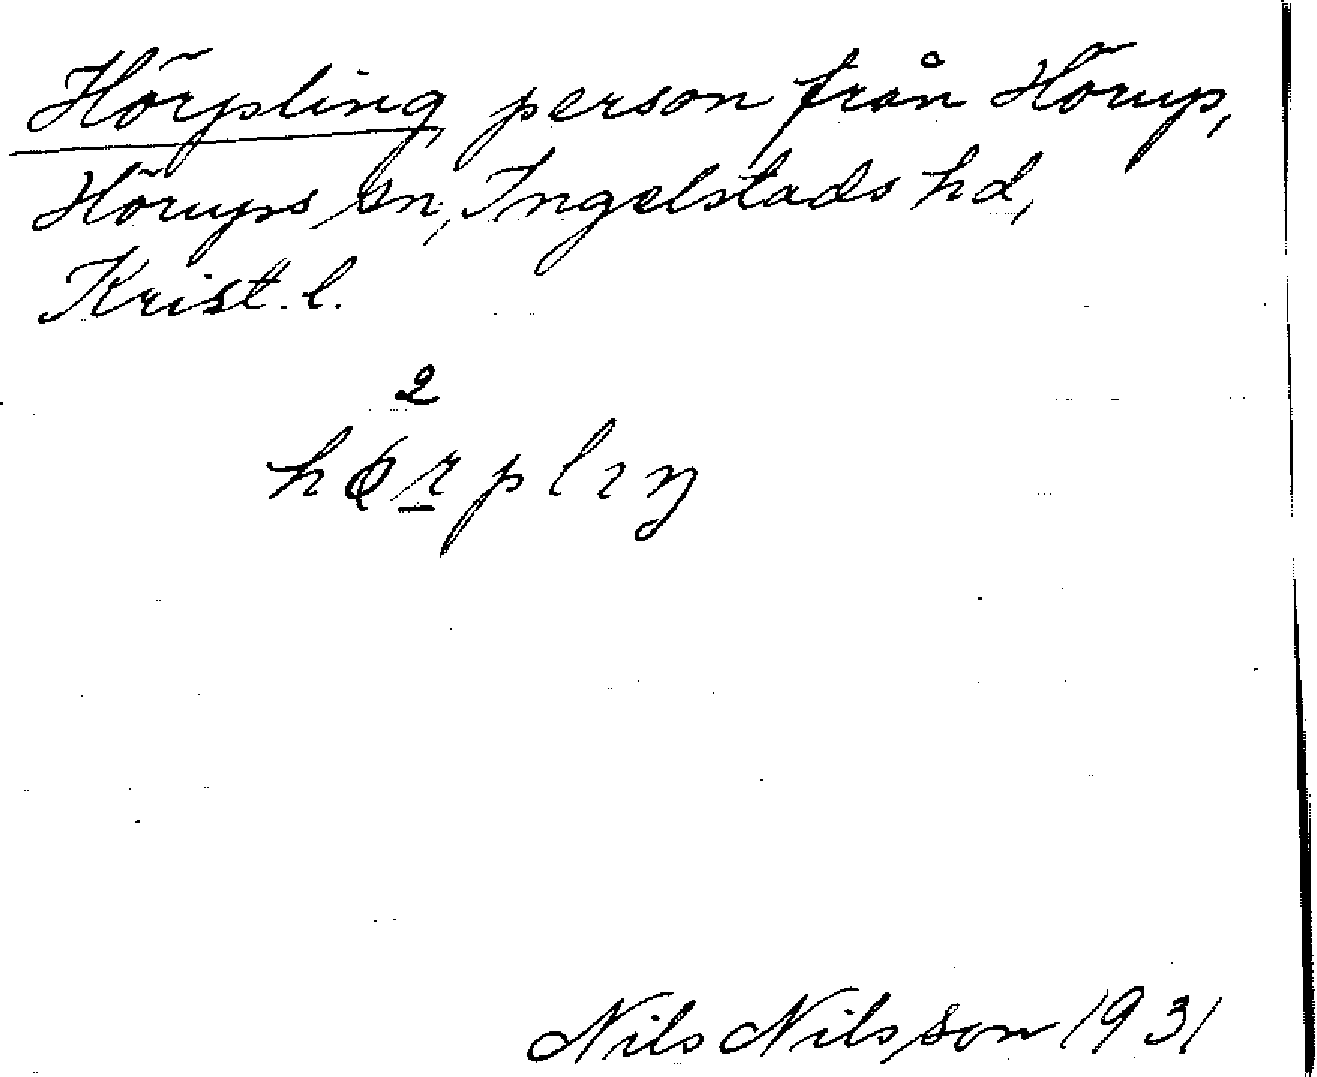 Hörpling, person från Hörup,
Hörups sn, Ingelstads hd,
Krist. l.
2
hørplıŋ
Nils Nilsson 1931